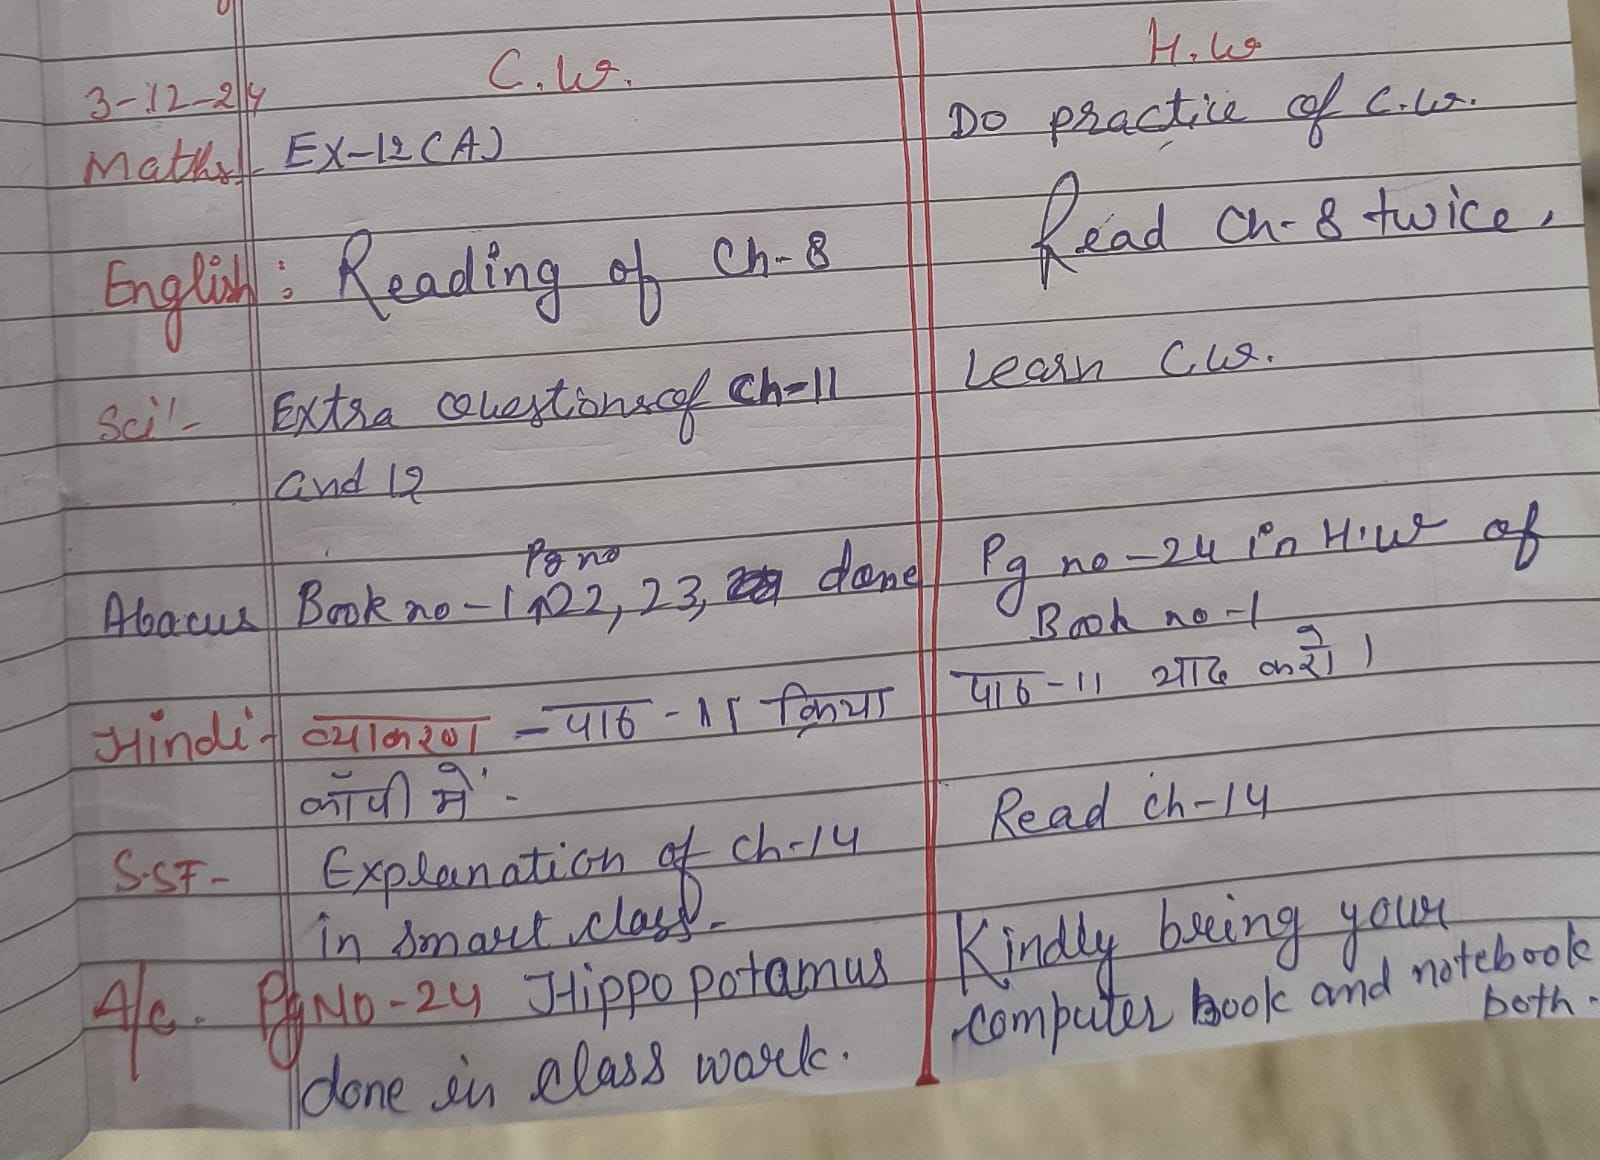 C.W. H.W
3-12-24
Maths:- EX-12(A) Do practice of C.W.
English: Reading of Ch-8 Read Ch-8 twice.
Sci:- Extra Questions of Ch-11 Learn C.W.
and 12
Pg no
Abacus Book no-1 22, 23, done Pg no-24 in H.W of
Book no-1
Hindi- व्याकरण - पाठ-11 क्रिया पाठ-11 याद करो।
कॉपी में -
S.ST- Explanation of ch-14 Read ch-14
in smart class.
A/c. Pg NO-24 Hippopotamus Kindly bring your
done in class work. computer book and notebook
both.